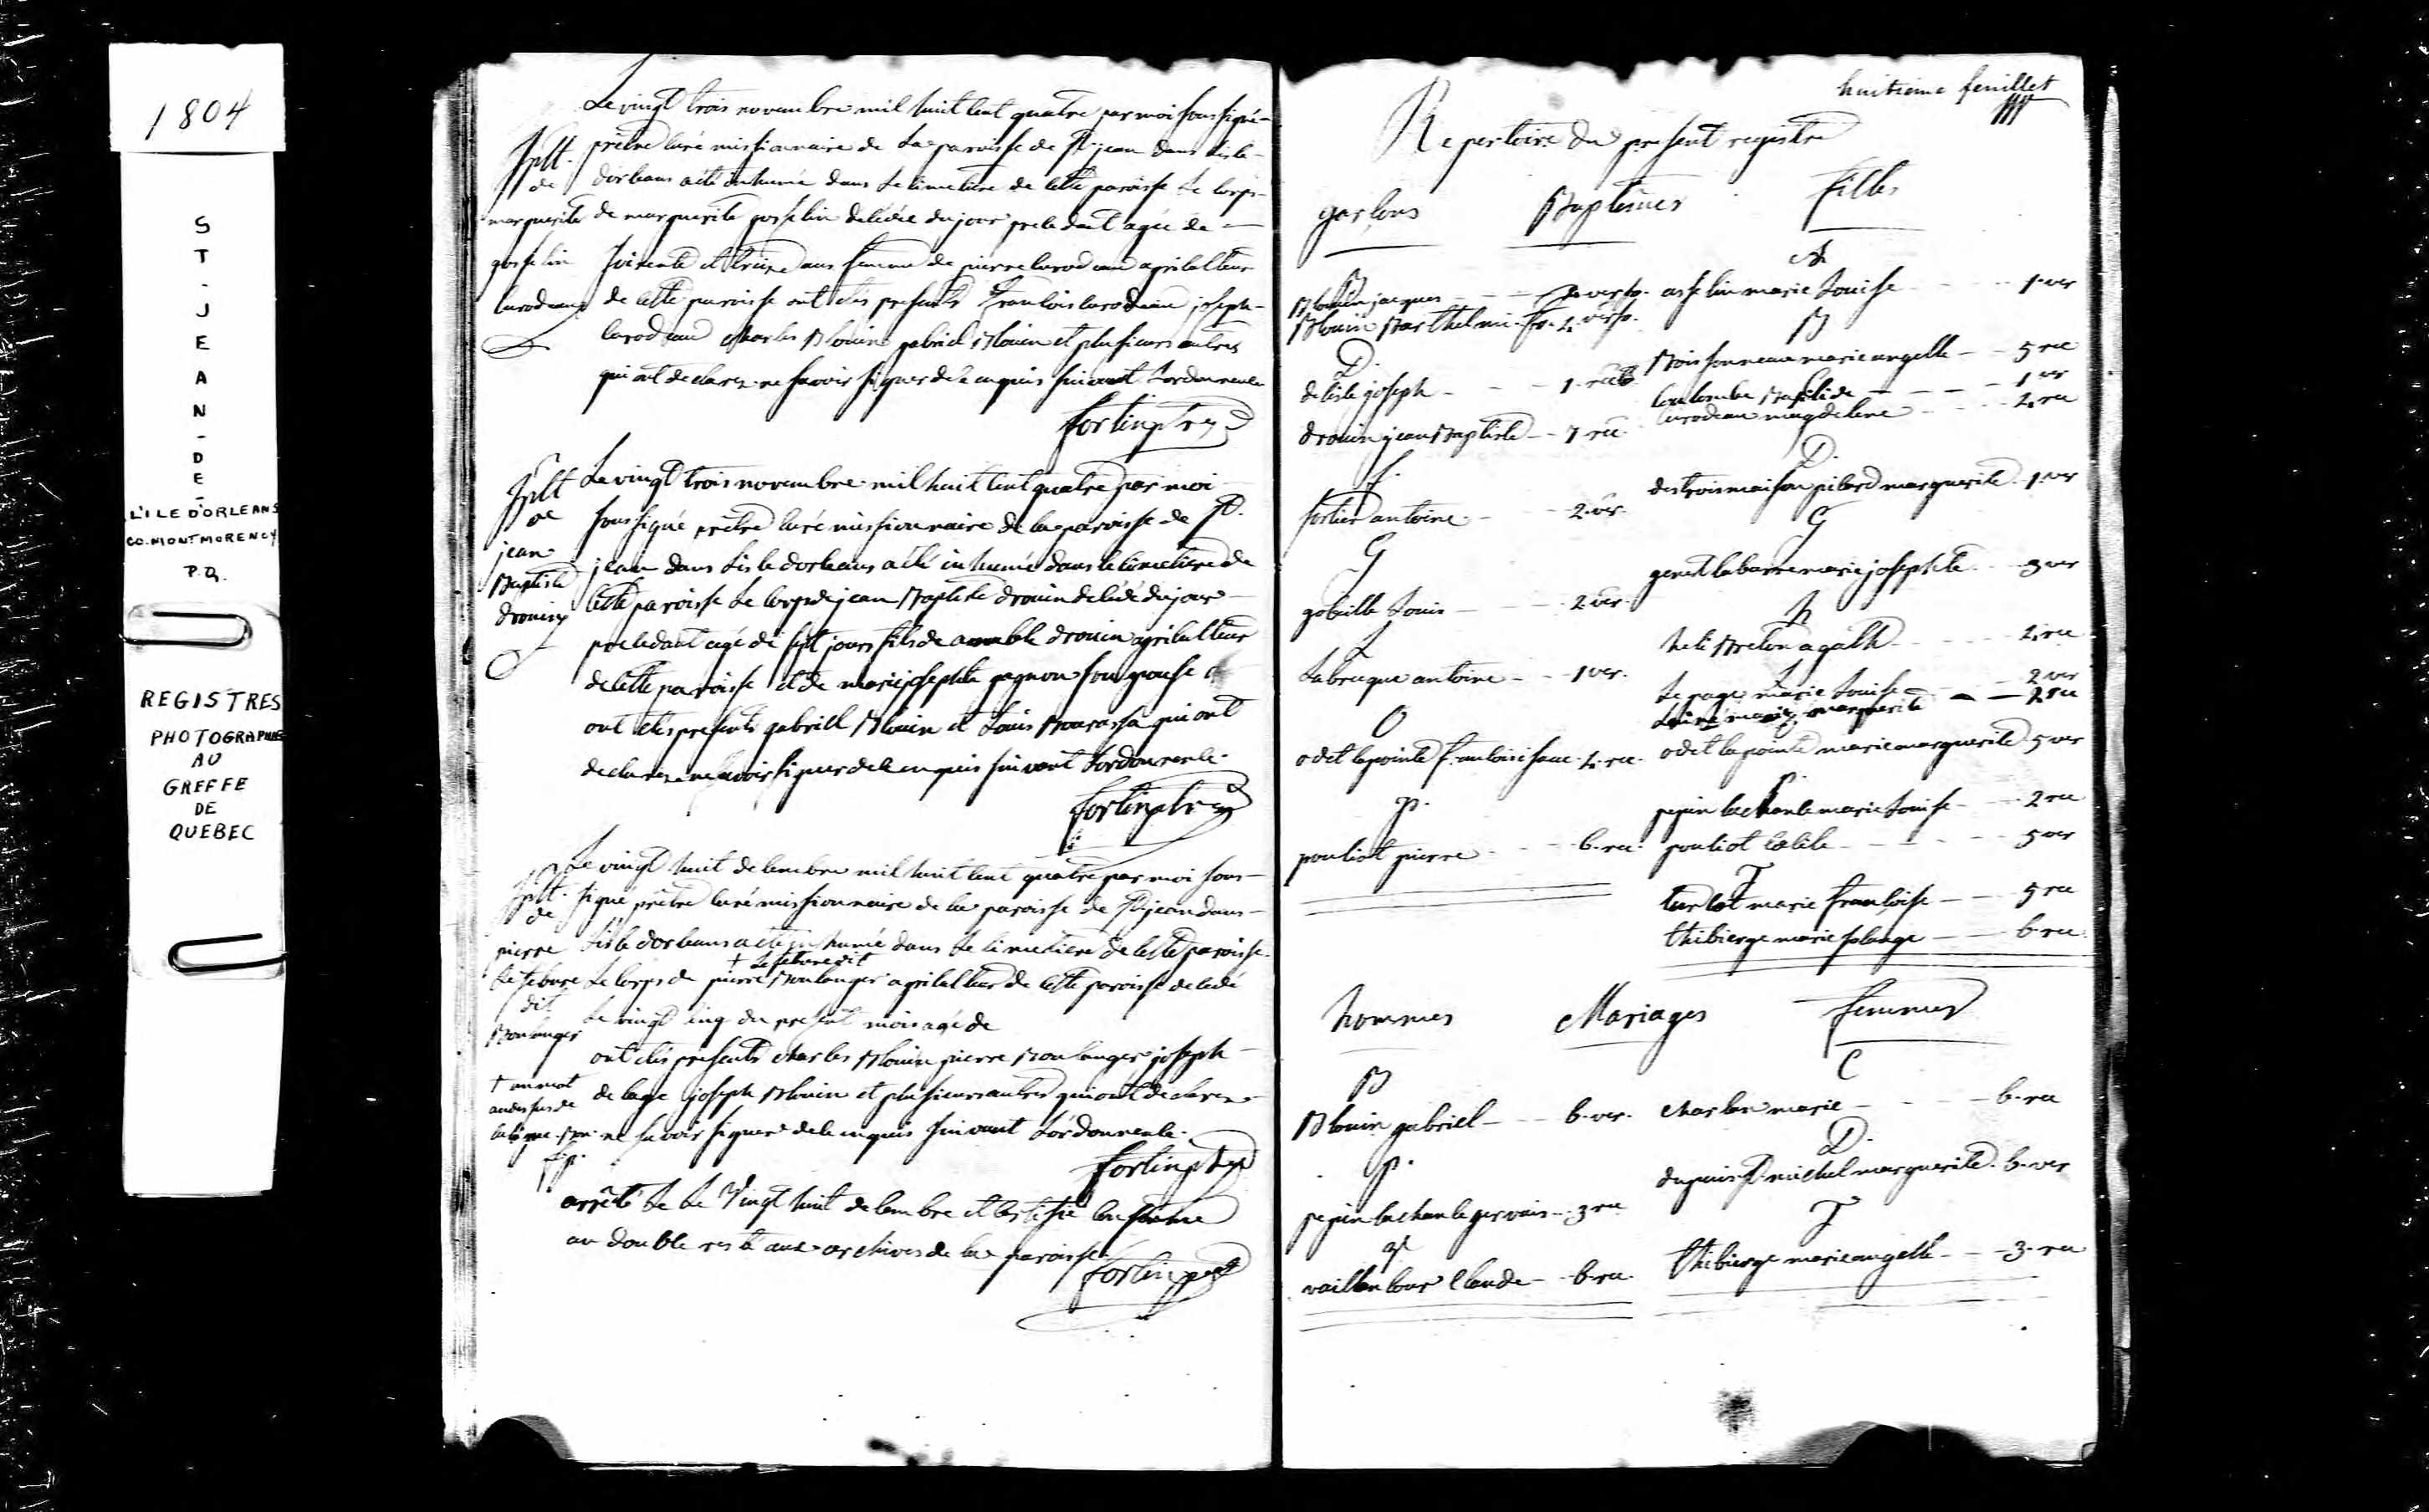 1804
ST-JEAN-DE-
L'ILE D'ORLEANS
CO. MONTMORENCY
P.Q.
REGISTRES
PHOTOGRAPHIÉS
AU
GREFFE
DE
QUEBEC
Le vingt trois novembre mil huit cent quatre par moi sous signé
prêtre curé missionnaire de la paroisse de St jean dans lisle
dorleans a été inhumé dans le cimetiere de cette paroisse le corps
de marguerite gosselin decédée du jour precedant agée de
soixente et treize ans femme de pierre curodeau agriculteur
de cette paroisse ont étés presents francois curodeau joseph
curodeau charles Blouin gabriel Blouin et plusieurs autres
qui ont declarez ne savoir signer de ce enquis suivant Lordonnence
fortin ptre
Splt.
de
marguerite
gosselin
curodeau
Le vingt trois novembre mil huit cent quatre par moi
sous signé prêtre curé missionnaire de la paroisse de St.
jean dans lisle dorleans a été inhumé dans le cimetiere de
cette paroisse le corps de jean Baptiste drouin decédé du jour
precedant agé de sept jours fils de amable drouin agriculteur
de cette paroisse et de marie josephte gagnon son epouse
ont étés presents gabriel Blouin et Louis Bourassa qui ont
declarez ne savoir signer de ce enquis suivant Lordonnence.
fortin ptre
Splt
de
jean
Baptiste
drouin
Le vingt huit decembre mil huit cent quatre par moi sous
signé prêtre curé missionnaire de la paroisse de St jean dans
lisle dorleans a été inhumé dans le cimetiere de cette paroisse
+ Lefebvre dit
le corps de pierre Boulanger agriculteur de cette paroisse decedé
le vingt cinq du present mois agé de
ont étés presents charles Blouin pierre Boulanger joseph
delage joseph Blouin et plusieurs autres qui ont declarez
ne savoir signer de ce enquis suivant Lordonnence.
fortin ptre
Splt.
de
pierre
Lefebvre
dit
Boulanger
+ un mot
au dessus de
la ligne
arrêté le Vingt huit decembre et certifié conforme
au double resté aux archives de la paroisse.
fortin ptre
huitieme feuillet
Repertoire du present registre
garcons Baptêmes filles
B A
Blouin jacques asselin marie Louise 1 ver
Blouin Barthelmi
D. B
delisle joseph Boissonneau marie angelle 5 rec
coulombe 1 ver
drouin jean Baptiste 7 rec curodeau magdelene 2 rec
f. D.
fortier antoine 2 ver. destroismaison picard marguerite 1 ver
G G
gobeille Louis 2 ver. genest labarre marie josephte 3 ver
L h
heli Breton agathe
Labrecque antoine 1 ver. L
Lepage marie Louise 2 ver
marie marguerite 2 rec
O
odet lapointe odet lapointe marie marguerite 5 ver
p. p.
pepin lachance marie Louise 2 rec
pouliot pierre 6 rec. pouliot cecile 5 ver
T
turcot marie françoise 5 rec
thibierge marie solange 6 rec
hommes Mariages femmes
B C
Blouin gabriel 6 ver. charlan marie 6 rec
p. D.
dupuis St michel marguerite 6 ver
pepin lachance gervais 3 rec
V T
vaillancour Claude 6 rec. thibierge marie angelle 3 rec